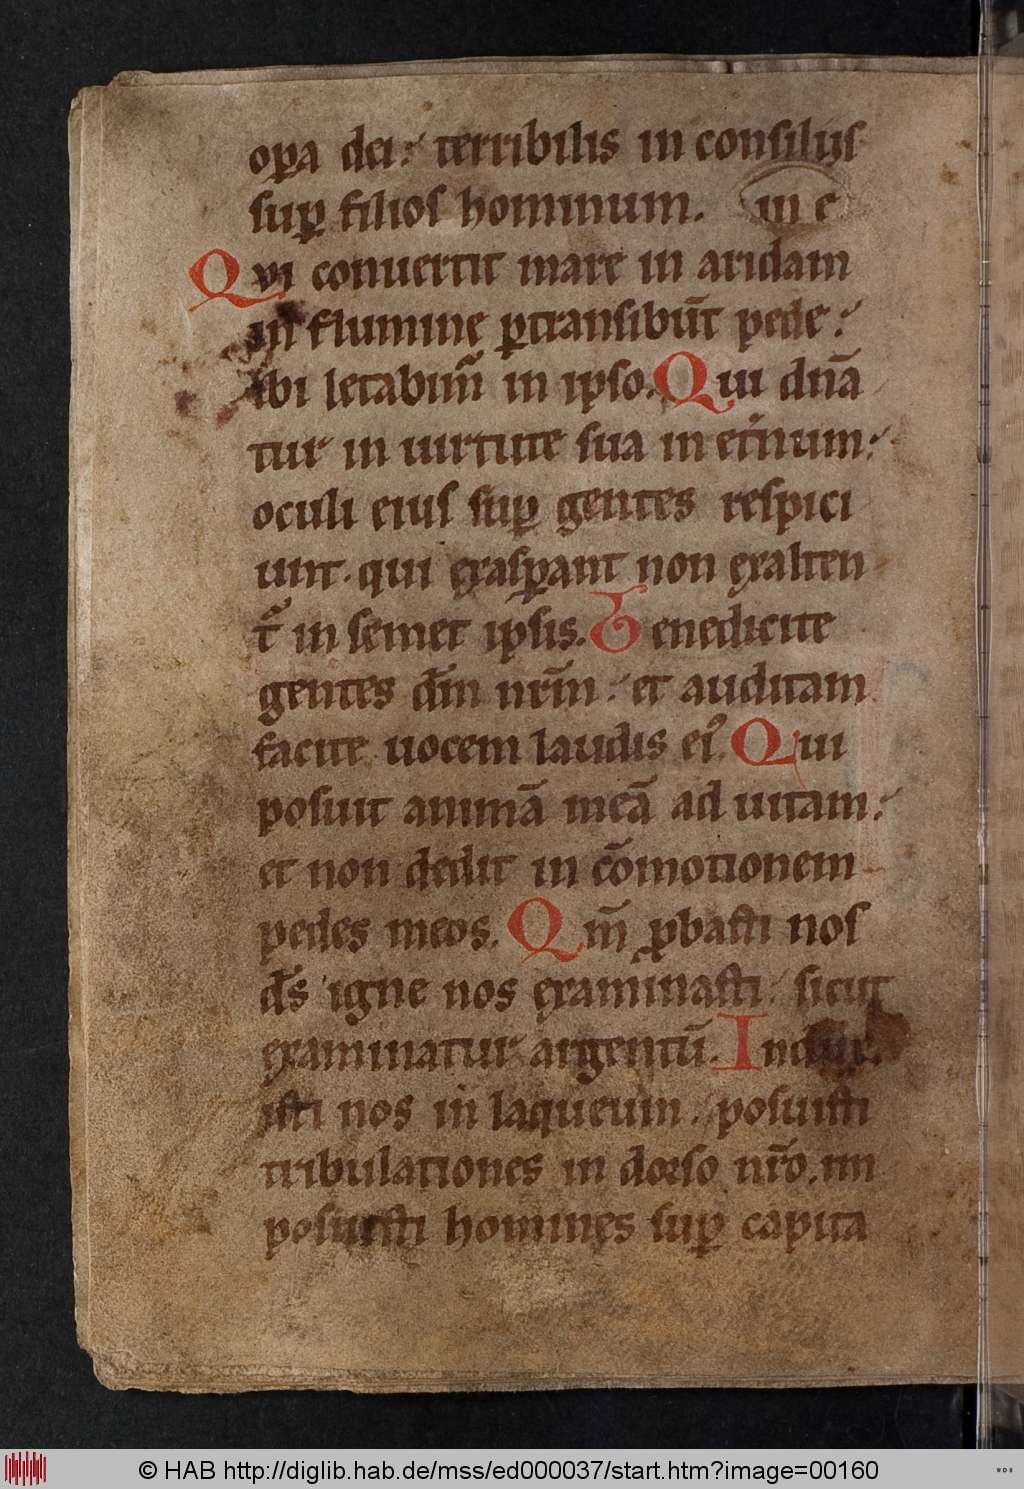 oꝑa dei: terribilis in consiliis
suꝑ filios hominum. in e
Qvi conuertit mare in aridam
in flumine ꝑtransibūt pede:
ibi letabim̄ in ipso. Qui dn̄a
tur in uirtute sua in et̄num:
oculi eius suꝑ gentes respici
unt. qui exasꝑant non exalten
t᷑ in semet ipsis. Benedicite
gentes dm̄ nrm̄: et auditam
facite uocem laudis ei᷒. Qui
posuit animā meā ad uitam:
et non dedit in cōmotionem
pedes meos. Qm̄ ꝓbasti nos
ds̄ igne nos examinasti: sicut
examinatur argentū. Indux
isti nos in laqueum. posuisti
tribulationes in dorso nr̄o. im
posuisti homines suꝑ capita
© HAB http://diglib.hab.de/mss/ed000037/start.htm?image=00160